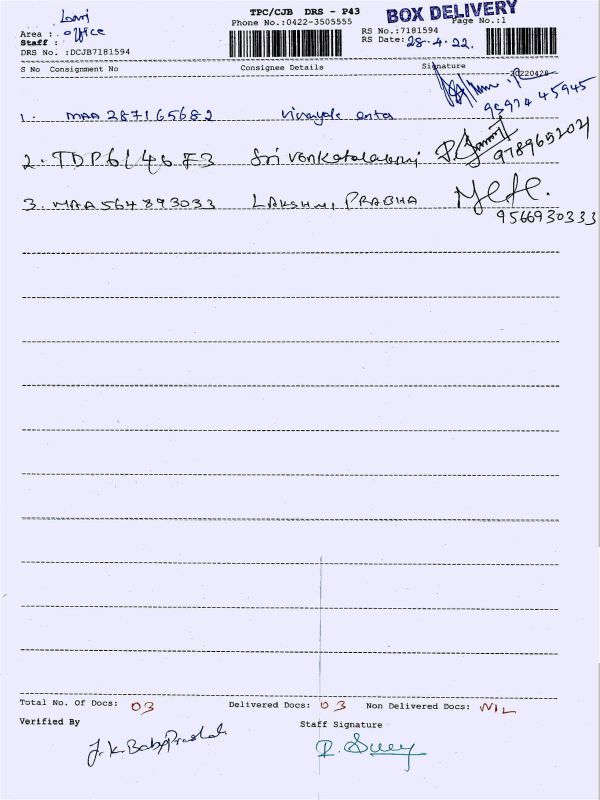 Lorri
TPC/CJB DRS - P43
BOX DELIVERY
Area : office
Phone No.:0422-3505555
Page No.:1
Staff :
RS No.:7181594
DRS No. :DCJB7181594
RS Date: 28-4-22.
S No Consignment No Consignee Details Signature
20220428
1. MAA 287165682 vinayak enter
95974 45945
2. TDP6146F3 Sri venkatalakmi
978965202
3. MAA 564893033 LAKSHMI PRABHA
9566930333
Total No. Of Docs: 03 Delivered Docs: 03 Non Delivered Docs: NIL
Verified By Staff Signature
J.K.BabyPrakash